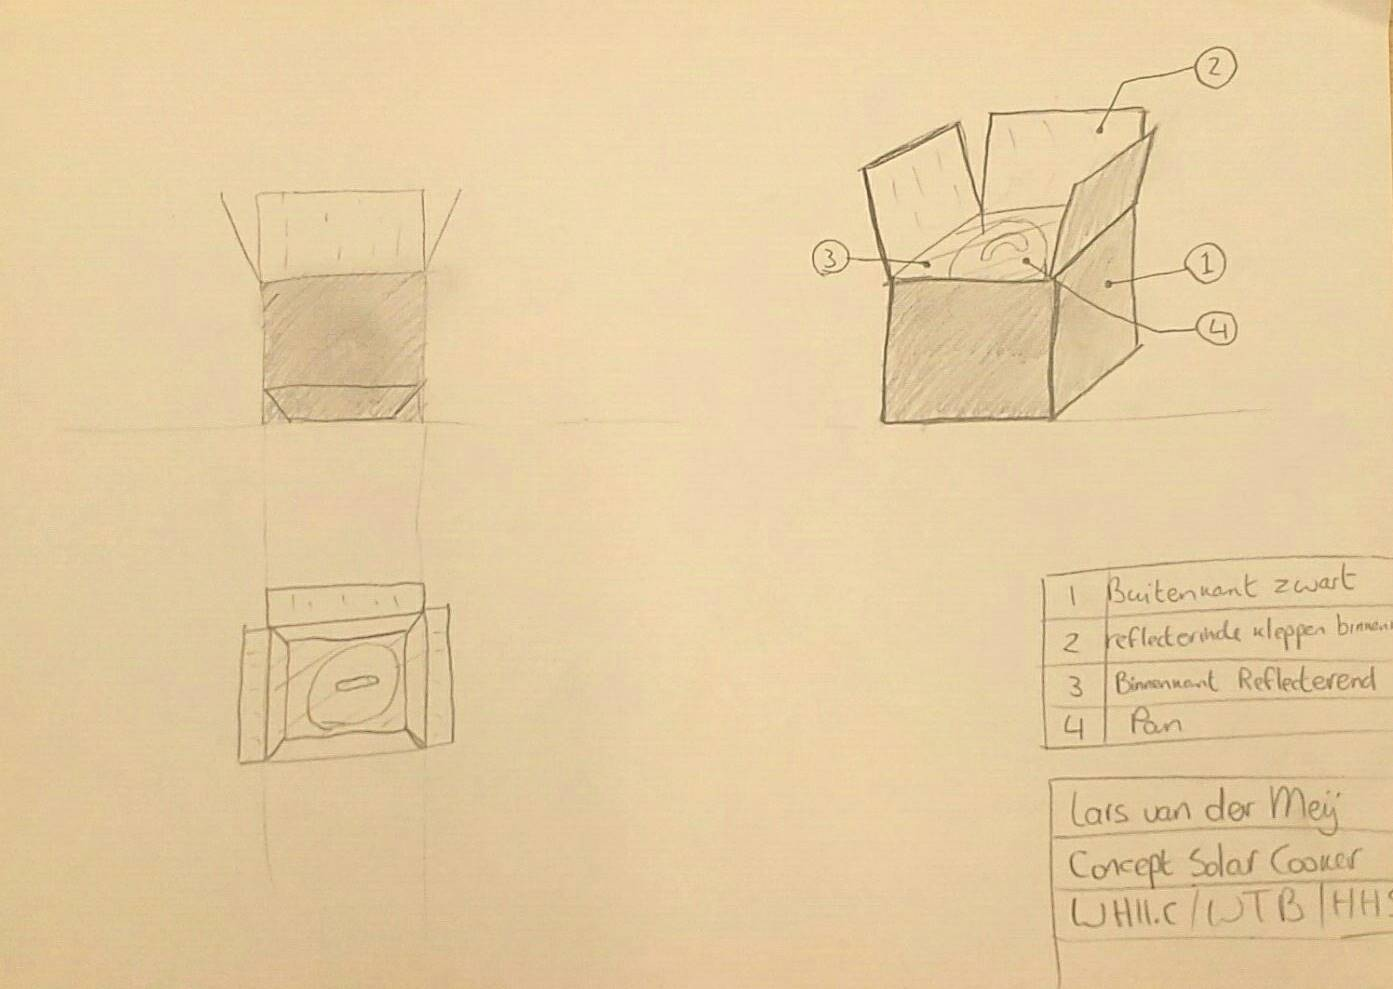 2
3
1
4
1 Buitenkant zwart
2 reflecterinde kleppen
3 Binnenkant Reflecterend
4 Pan
Lars van der Meij
Concept Solar Cooker
WH11.C / WTB / HHS